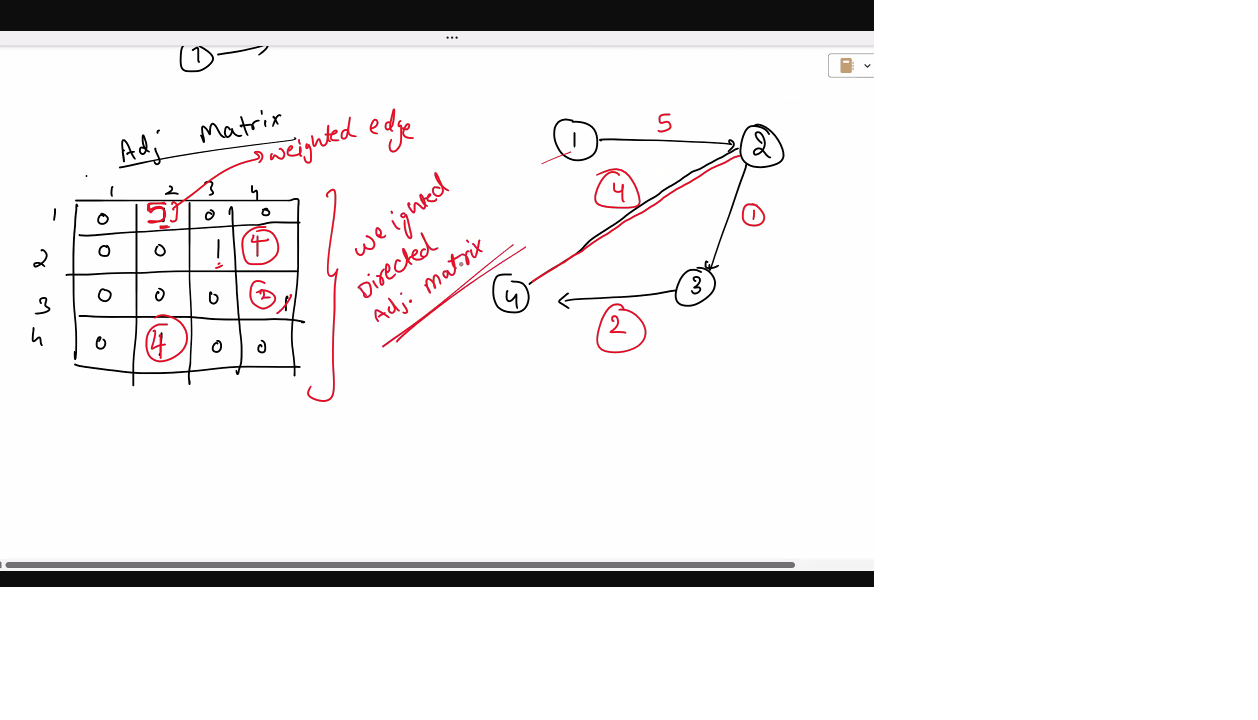 1
Adj Matrix
weighted edge
1 2 3 4
1 0 5 0 0
2 0 0 1 4
3 0 0 0 2
4 0 4 0 0
weighted
Directed
Adj. matrix
1 5 2
4
1
4 3
2